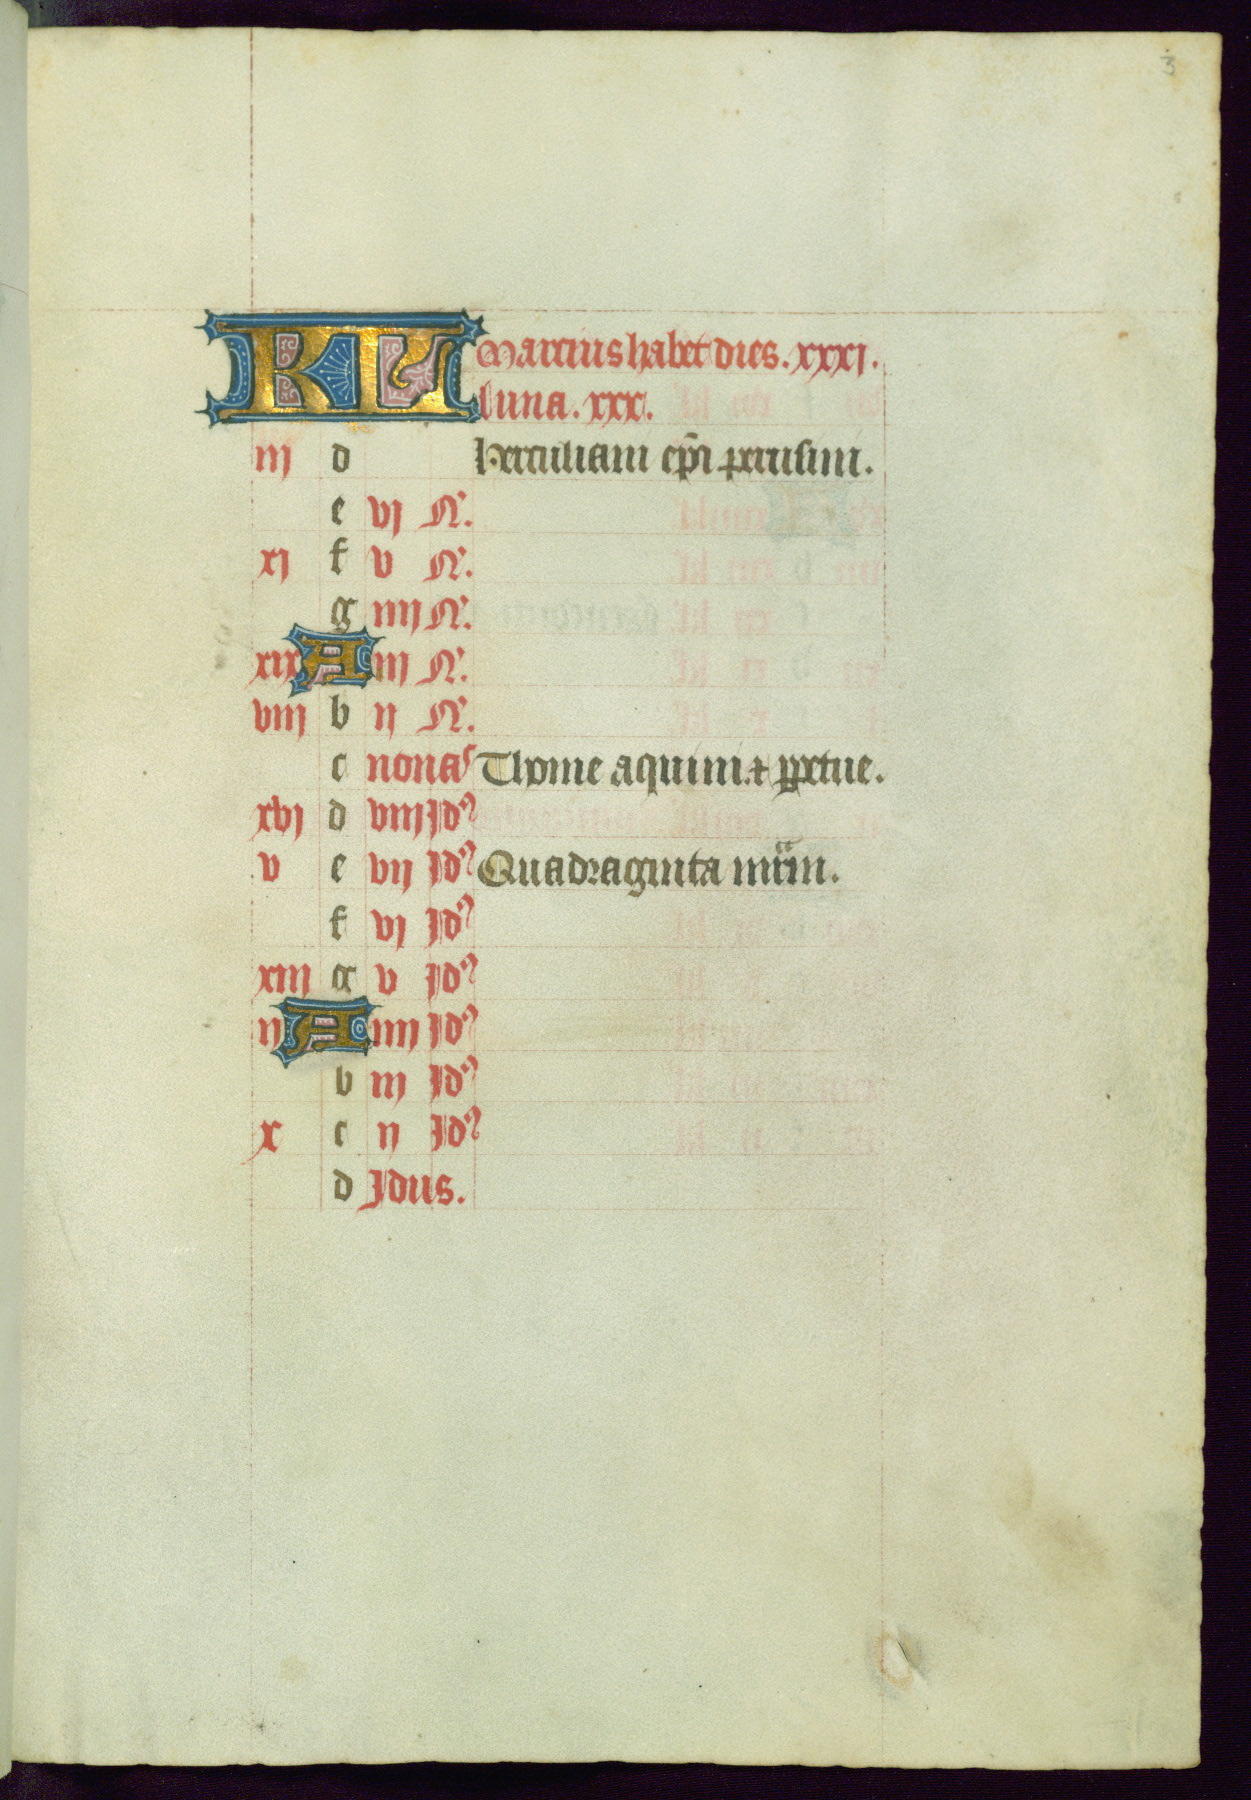 3
KL Marcius habet dies. xxxj.
luna. xxx.
iij d Herculiani ep̄i perusini.
e vj N.
xj f v N.
g iiij N.
xix A iij N.
viij b ij N.
c nonas Thome aquini et perpetue.
xvj d viij Id
v e vij Id Quadraginta mr̄m.
f vj Id
xiij g v Id
ij A iiij Id
b iij Id
x c ij Id
d Idus.